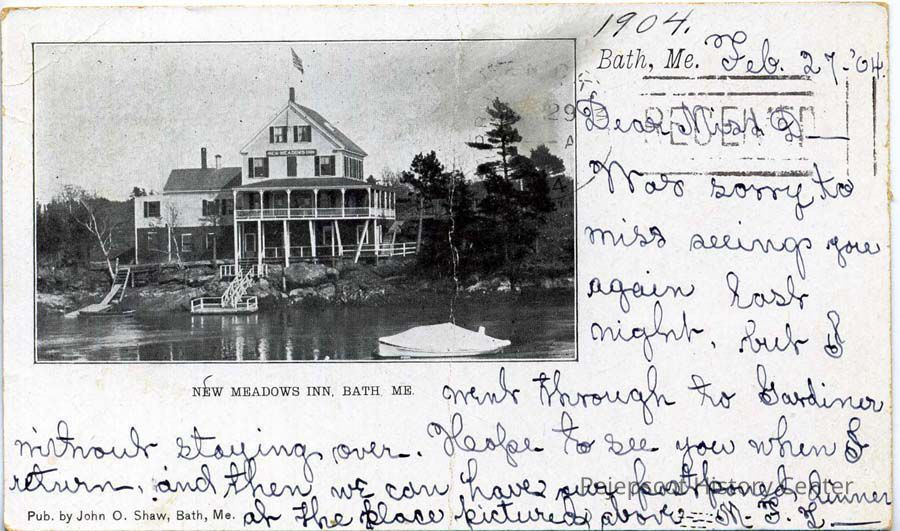 1904.
Bath, Me. Feb. 27-'04.
RECEIVED
Dear Miss D—
Was sorry to
miss seeing you
again last
night, but I
NEW MEADOWS INN
NEW MEADOWS INN, BATH ME.
went through to Gardiner
without staying over. Hope to see you when I
return, and then we can have our postponed dinner
at the place pictured above—
Pejepscot History Center
Pub. by John O. Shaw, Bath, Me.